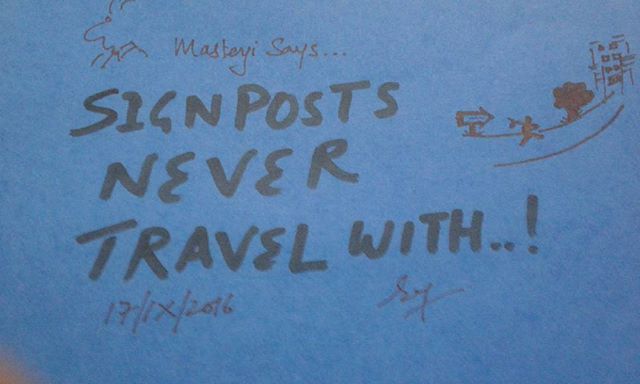 Says...
SIGNPOSTS
NEVER
TRAVEL WITH..!
17/IX/2016